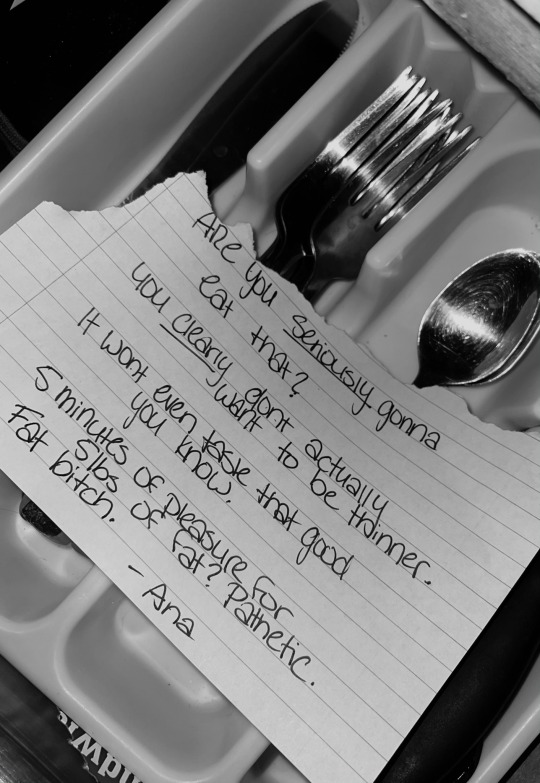 Are you seriously gonna
eat that?
you clearly dont actually
want to be thinner.
It wont even taste that good
you know.
5 minutes of pleasure for
5lbs of fat? Pathetic.
Fat bitch.
- Ana